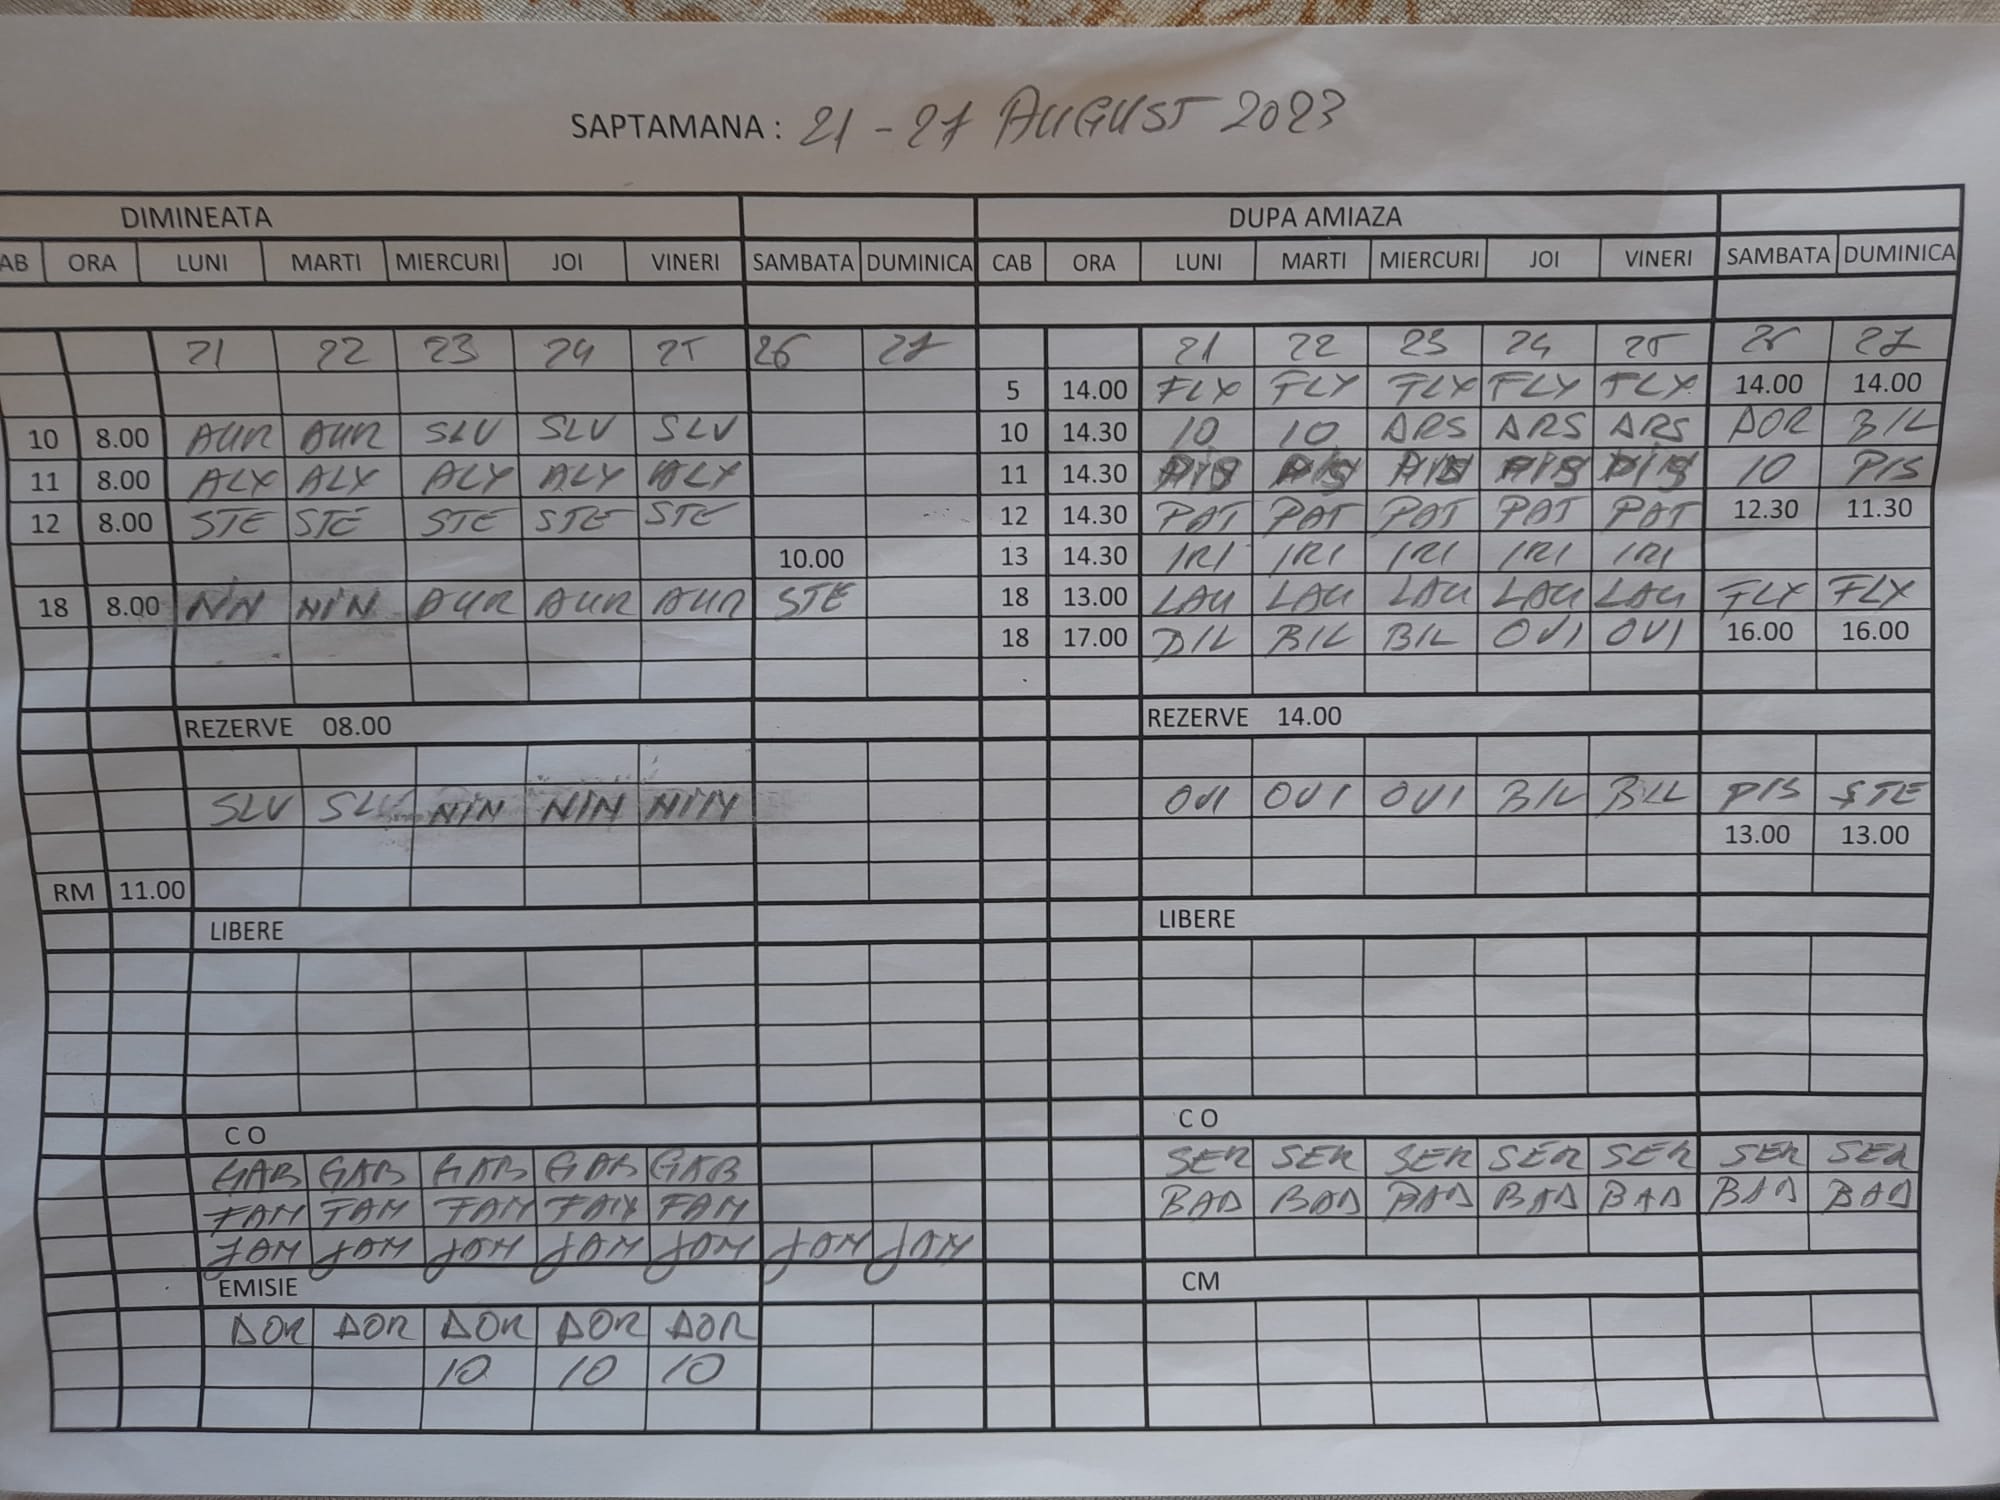 SAPTAMANA : 21 - 27 AUGUST 2023
DIMINEATA DUPA AMIAZA
AB ORA LUNI MARTI MIERCURI JOI VINERI SAMBATA DUMINICA CAB ORA LUNI MARTI MIERCURI JOI VINERI SAMBATA DUMINICA
21 22 23 24 25 26 27 21 22 23 24 25 26 27
5 14.00 FLX FLX FLX FLX FLX 14.00 14.00
10 8.00 AUR AUR SLV SLV SLV 10 14.30 10 10 ARS ARS ARS DOR BIL
11 8.00 ALX ALX ALX ALX ALX 11 14.30 PIS PIS PIS PIS PIS 10 PIS
12 8.00 STE STE STE STE STE 12 14.30 PAT PAT PAT PAT PAT 12.30 11.30
10.00 13 14.30 IRI IRI IRI IRI IRI
18 8.00 NIN NIN AUR AUR AUR STE 18 13.00 LAU LAU LAU LAU LAU FLX FLX
18 17.00 BIL BIL BIL OVI OVI 16.00 16.00
REZERVE 08.00 REZERVE 14.00
SLV SLV NIN NIN NIN OVI OVI OVI BIL BIL PIS STE
13.00 13.00
RM 11.00
LIBERE LIBERE
C O C O
GAB GAB GAB GAB GAB SER SER SER SER SER SER SER
FAM FAM FAM FAM FAM BAD BAD BAD BAD BAD BAD BAD
JAM JAM JAM JAM JAM JAM JAM
EMISIE CM
DOR DOR DOR DOR DOR
10 10 10